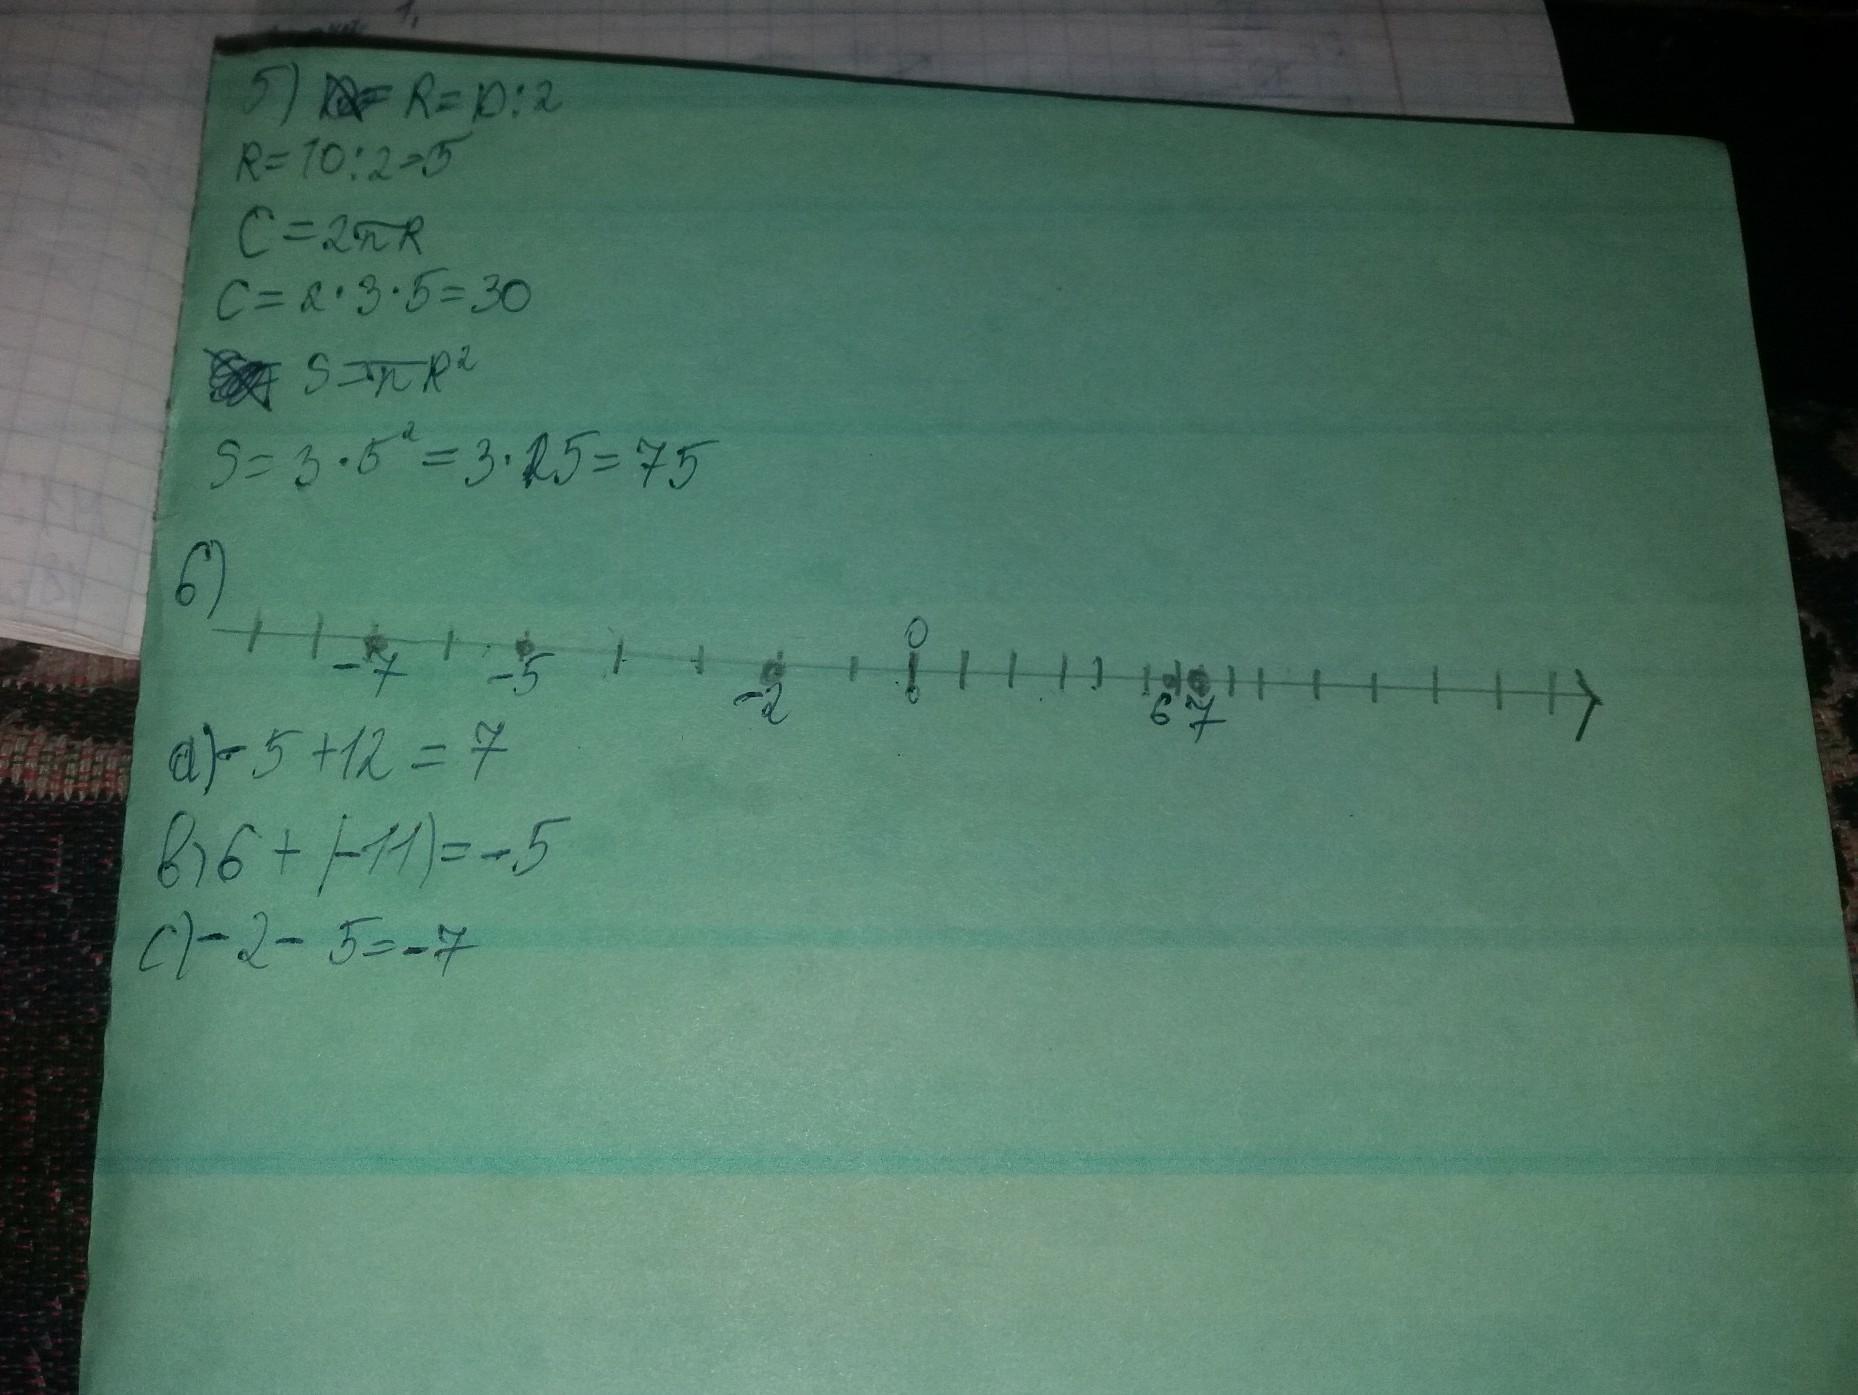 5) R=D:2
R=10:2=5
C=2πR
C=2·3·5=30
S=πR²
S=3·5²=3·25=75
6)
0
-7 -5 -2 6 7
a)-5+12=7
b)6+(-11)=-5
c)-2-5=-7